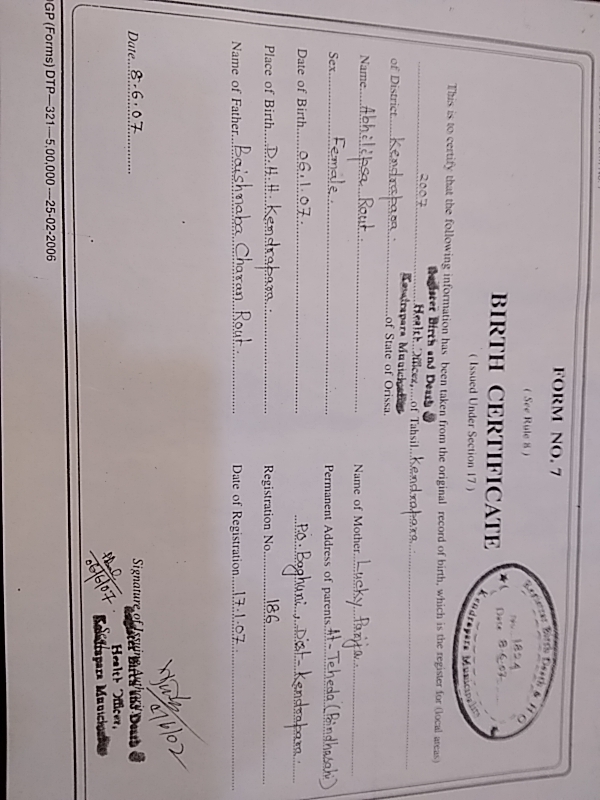 FORM NO. 7
( See Rule 8 )
BIRTH CERTIFICATE
( Issued Under Section 17 )
Registrar Birth Death & H O
No. 1824
Date 8.6.07
Kendrapara Municipality
This is to certify that the following information has been taken from the original record of birth, which is the register for (local areas)
2007
Register Birth and Death
Health Officer,
Kendrapara Municipality
of Tahsil Kendrapara
of District Kendrapara of State of Orissa.
Name Abhilipsa Rout
Sex Female
Date of Birth 06.1.07.
Place of Birth D.H.H. Kendrapara.
Name of Father Baishnaba Charan Rout.
Name of Mother Lucky Parija
Permanent Address of parents At- Teheda (Bindhasahi)
Po. Baghuni, Dist- Kendrapara.
Registration No. 186
Date of Registration 17.1.07.
Date 8.6.07
Signature of Issuing
Register Birth and Death
Health Officer,
Kendrapara Municipality
06/6/07
OGP (Forms) DTP—321—5,00,000—25-02-2006